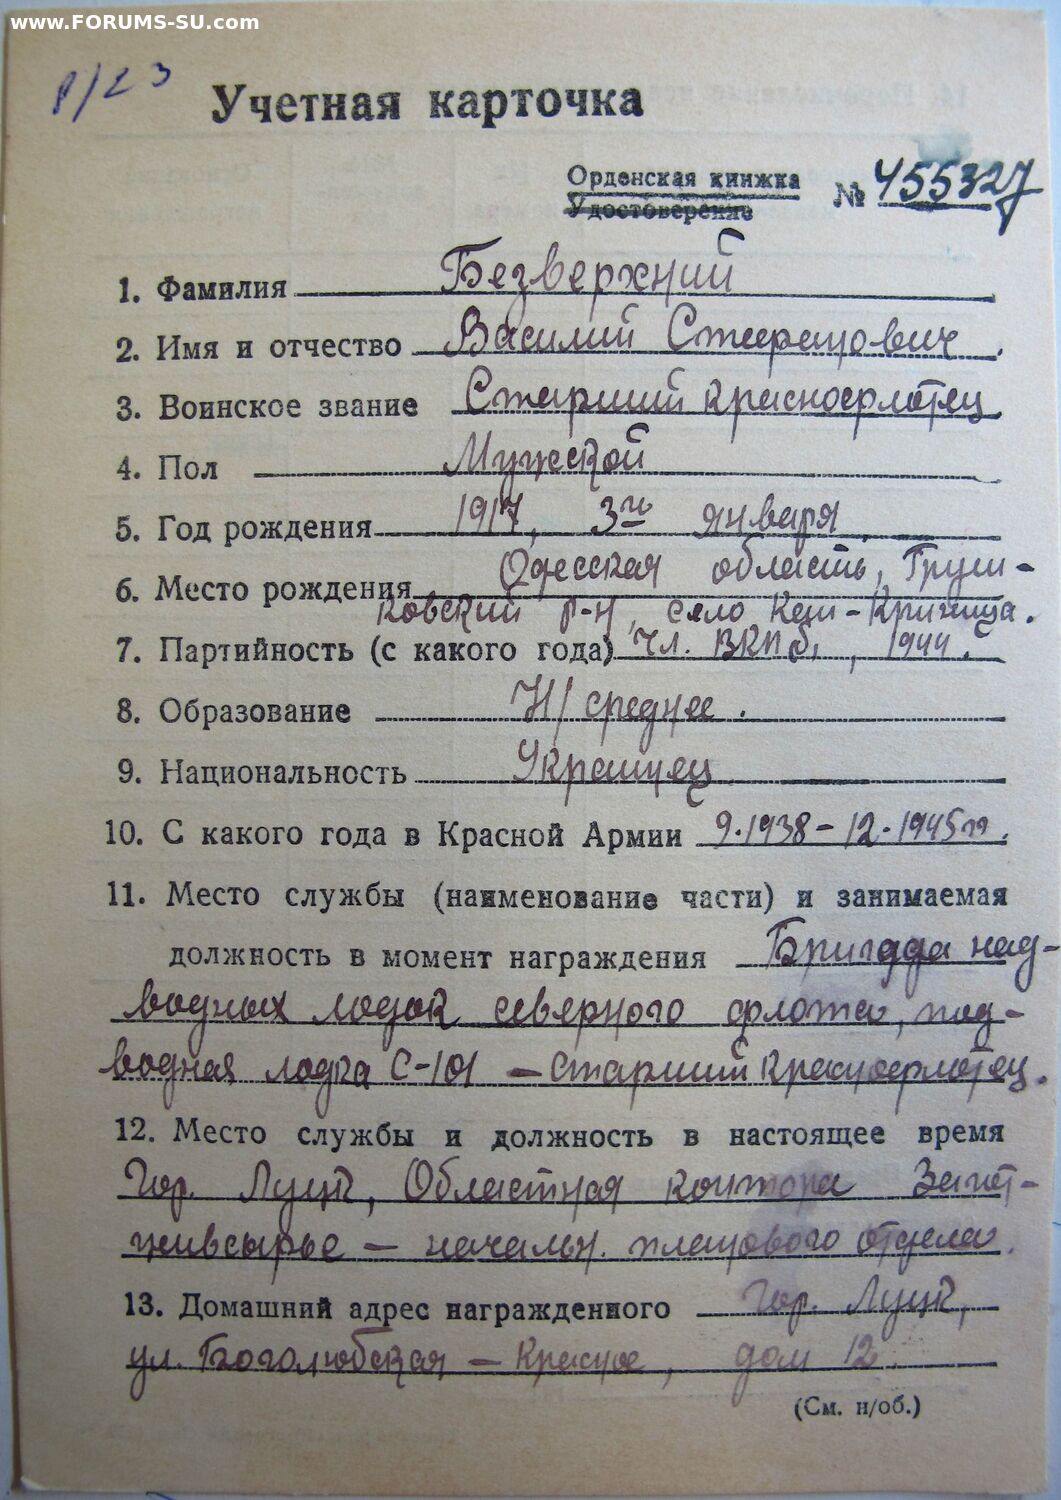 www.FORUMS-SU.com
Р/23
Учетная карточка
Орденская книжка № 455327
Удостоверение
1. Фамилия Безверхний
2. Имя и отчество Василий
3. Воинское звание Старший краснофлотец
4. Пол Мужской
5. Год рождения 1917, 3го января
6. Место рождения Одесская область, Груш-
ковский р-н, село
7. Партийность (с какого года) Чл. ВКП б, 1944.
8. Образование Н/среднее.
9. Национальность Украинец
10. С какого года в Красной Армии 9.1938-12.1945гг.
11. Место службы (наименование части) и занимаемая
должность в момент награждения Бригада над-
водных лодок северного флота, под-
водная лодка С-101 - старший краснофлотец.
12. Место службы и должность в настоящее время
Гор. Луцк, Областная контора Загот-
живсырье - начальн. планового отдела.
13. Домашний адрес награжденного Гор. Луцк,
ул. Боголюбская - Красное, дом 12.
(См. н/об.)